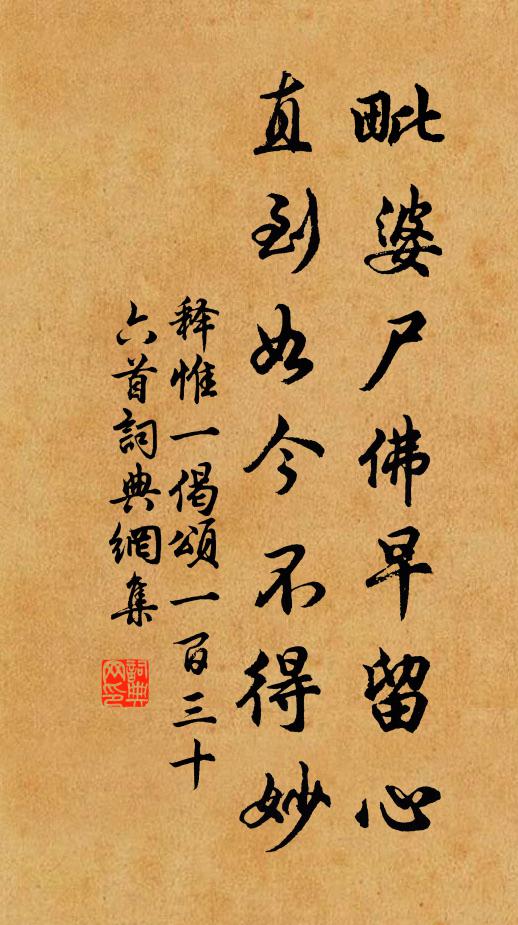 毗婆尸佛早留心
直到如今不得妙
释惟一偈頌一百三十
六首詞典網集
詞典
网印